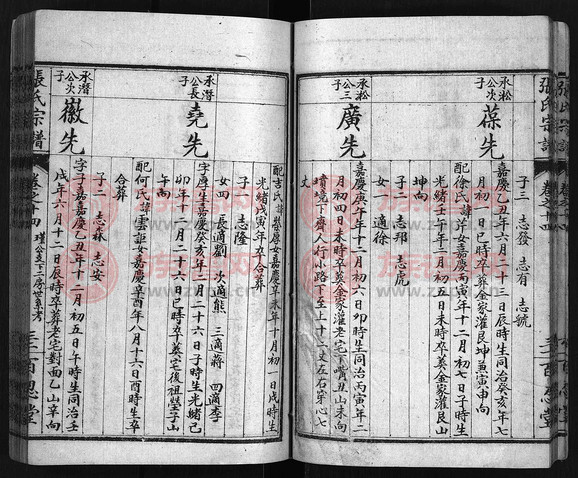 張氏宗譜
卷之十四
三百忍堂
子三 志發 志有 志虢
承淞公次子
葆先
嘉慶乙丑年六月十三日辰時生同治癸亥年七
月初一日巳時卒葬金家灌艮坤兼寅申向
配徐氏諱洋女嘉慶丙寅年十二月初七日子時生
光緒壬午年十二月初五日未時卒葬金家灌艮山
坤向
子二 志邦 志虎
女一 適徐
承淞公三子
廣先
嘉慶庚午年十二月初六日卯時生同治丙寅年二
月初四日未時卒葬金家灌老宅下嘴丑山未向
墳境下齊人行小路下至上十二丈左右穿心七
丈
配吉氏諱榮厚女嘉慶辛未年十月初一日戌時生
光緒戊寅年卒合葬
子一 志隆
女四 長適劉 次適熊 三適蔣 四適李
承潛公長子
堯先
字厚生嘉慶癸亥年十二月二十六日子時生光緒己
卯年十二月二十六日巳時卒葬宅後祖塋子山
午向
配何氏諱雲証女嘉慶辛酉年八月十六日酉時生卒
合葬
子二 志森 志安
承潛公次子
徽先
字 嘉慶乙丑年十二月初五日午時生同治壬
戌年六月十二日辰時卒葬老宅對面乙山辛向
張氏宗譜
卷之十四
三百忍堂